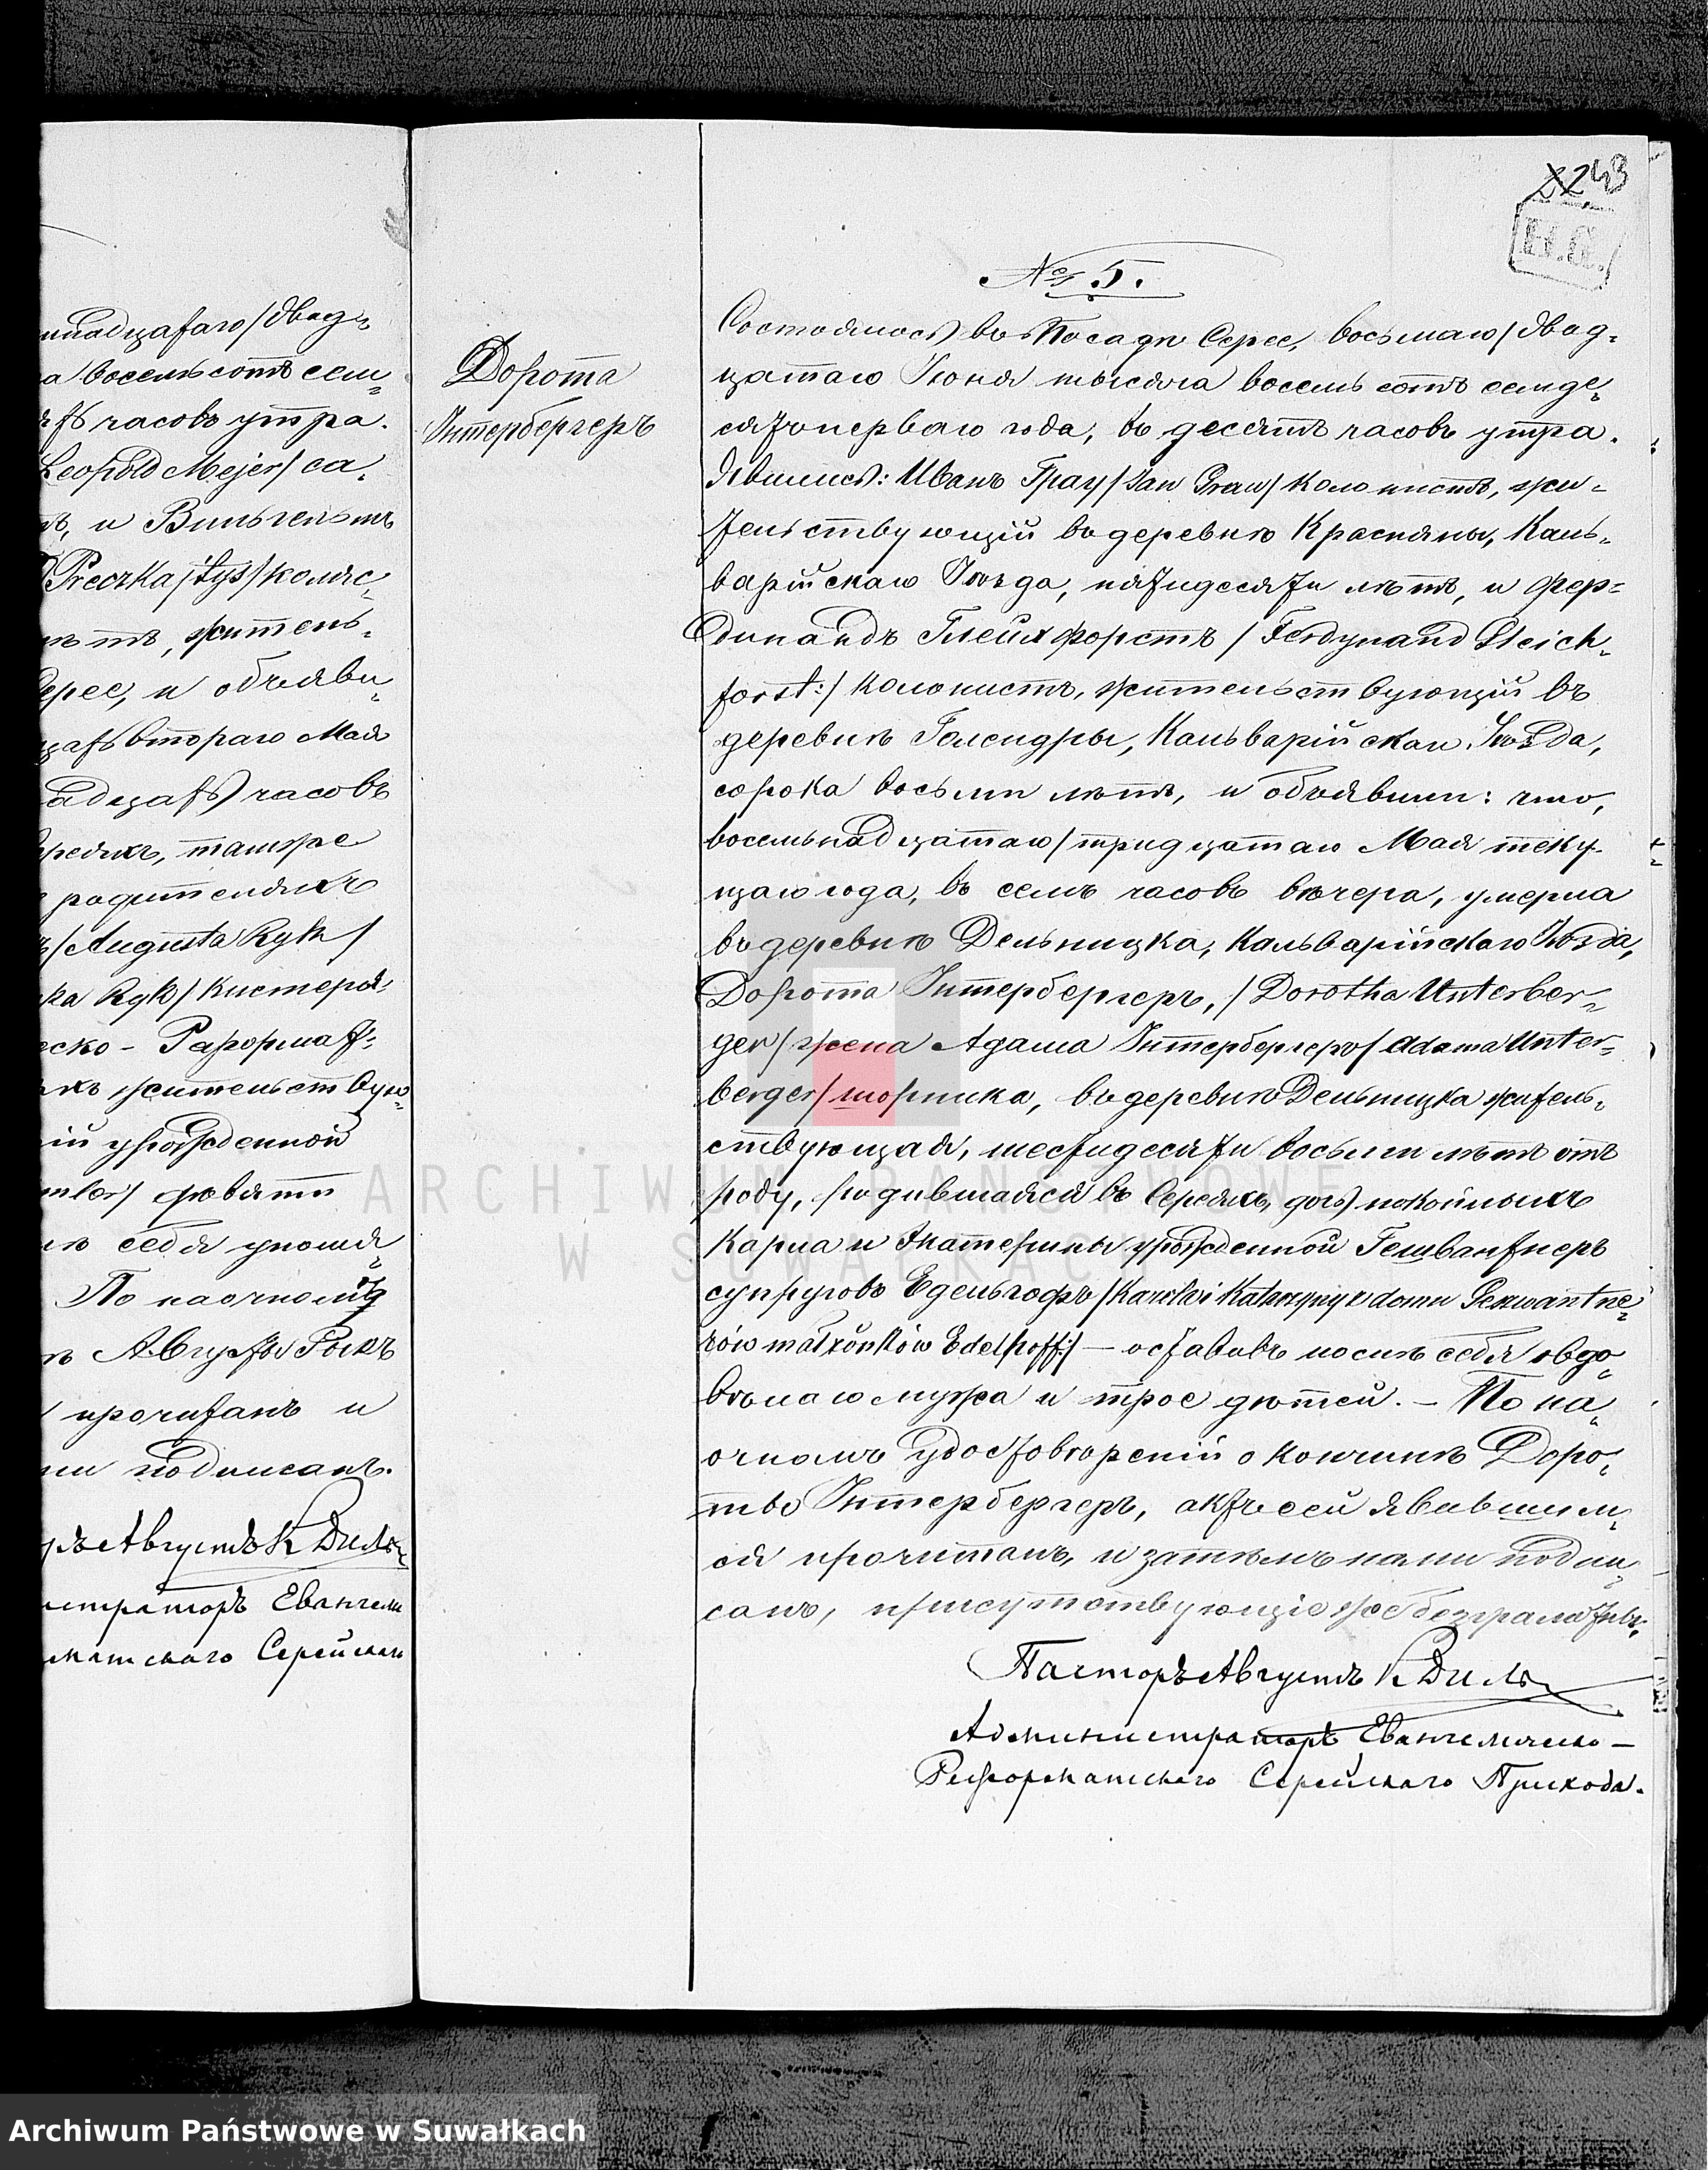 243
Н.G.
надцатаго/двад-
а восемьсотъ сем-
ть часовъ утра.
Leopold Mejer/ са-
ъ, и Вильгельмъ
Preczka/:tys/колис-
лѣтъ, житель-
Серее, и объяви-
цать втораго Мая
адцать часовъ
Середяхъ, таиже
родителяхъ
/Augusta Ryk/
ka Ryk/Кистера
еско - Реформат-
хъ жительствую-
ій урожденной
mler/ девяти
ѣ себя умоша
По наочномъ
ѣ Августы Рыкъ
прочитанъ и
ми подписанъ.
ръ Августъ К Диль
истраторъ Евангели
матскаго Серейскаго
Дорота
Інтербергеръ
№ 5.
Состоялось въ Посадѣ Серее, восьмаго/двад-
цатаго Іюня тысяча восемь сотъ семьде-
сятоперваго года, въ десять часовъ утра.
Явились: Иванъ Грау/Jan Grau/колонистъ, жи-
тельствующій въ деревнѣ Красняны, Каль-
варійскаго Уѣзда, пятидесяти лѣтъ, и Фер-
динандъ Глейхфорстъ/Ferdynand Gleich-
forst:/ колонистъ, жительствующій въ
деревнѣ Голендры, Кальварійскаго Уѣзда,
сорока восьми лѣтъ, и объявили: что,
восемьнадцатаго/тридцатаго Мая теку-
щаго года, въ семь часовъ вечера, умерла
въ деревнѣ Дельницка, Кальварійскаго Уѣзда,
Дорота Інтербергеръ,/Dorotha Unterber-
ger/жена Адама Інтербергеръ/Adama Unter-
berger/шорника, въ деревнѣ Дельницка житель-
ствующая, шестидесяти восьми лѣтъ отъ
роду, родившаяся въ Середяхъ, дочь покойныхъ
Карла и Экатерины урожденной Гешвантнеръ
супруговъ Едельгофъ/Karola i Katarzyny z domu Geswantne-
rów małżonków Edelhoff:/ — оставивъ послѣ себя овдо-
вѣлаго мужа и трое дѣтей. — По на-
очномъ удостовѣреніи о кончинѣ Доро-
ты Інтербергеръ, актъ сей явившим-
ся прочитанъ, и затѣмъ нами подпи-
санъ, присутствующіе же безграматны.
Пасторъ Августъ К Диль
Администраторъ Евангелическо —
Реформатскаго Серейскаго Прихода.
ARCHIWUM PAŃSTWOWE
W SUWAŁKACH
Archiwum Państwowe w Suwałkach